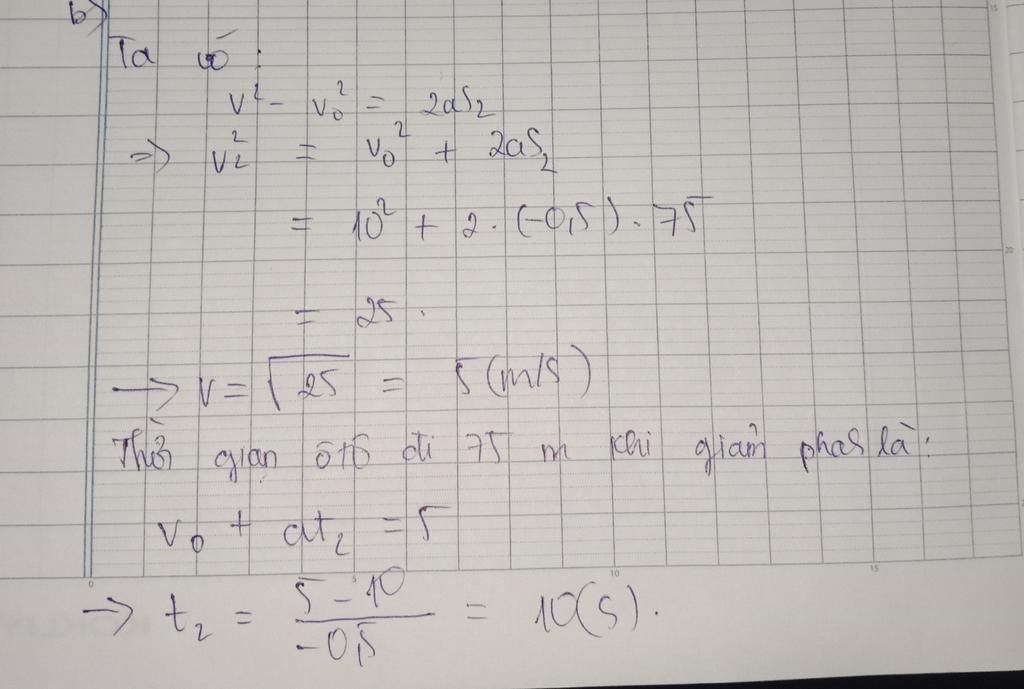 b)
Ta có:
v² - v₀² = 2aS₂
=> v₂² = v₀² + 2aS₂
= 10² + 2 . (-0,5) . 75
= 25.
→ v = √25 = 5 (m/s)
Thời gian ôtô đi 75 m khi giảm phas là:
v₀ + at₂ = 5
→ t₂ = (5 - 10)/(-0,5) = 10 (s).
15
20
0 5 10 15